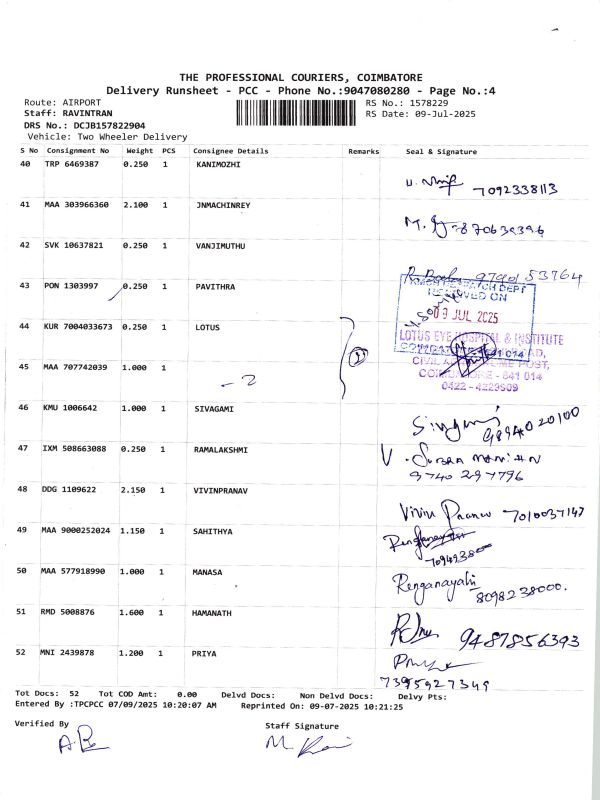 THE PROFESSIONAL COURIERS, COIMBATORE
Delivery Runsheet - PCC - Phone No.:9047080280 - Page No.:4
Route: AIRPORT RS No.: 1578229
Staff: RAVINTRAN RS Date: 09-Jul-2025
DRS No.: DCJB157822904
Vehicle: Two Wheeler Delivery
S No Consignment No Weight PCS Consignee Details Remarks Seal & Signature
40 TRP 6469387 0.250 1 KANIMOZHI
7092338113
41 MAA 303966360 2.100 1 JNMACHINREY
42 SVK 10637821 0.250 1 VANJIMUTHU
97901 53764
43 PON 1303997 0.250 1 PAVITHRA
RECEIVED ON
09 JUL 2025
44 KUR 7004033673 0.250 1 LOTUS
LOTUS EYE HOSPITAL & INSTITUTE
45 MAA 707742039 1.000 1
- 2
COIMBATORE - 641 014
0422 - 4229909
46 KMU 1006642 1.000 1 SIVAGAMI
9894020100
47 IXM 508663088 0.250 1 RAMALAKSHMI
9740 297796
48 DDG 1109622 2.150 1 VIVINPRANAV
7010037147
49 MAA 9000252024 1.150 1 SAHITHYA
50 MAA 577918990 1.000 1 MANASA
Renganayahi
8098238000.
51 RMD 5008876 1.600 1 HAMANATH
9487856393
52 MNI 2439878 1.200 1 PRIYA
7395927349
Tot Docs: 52 Tot COD Amt: 0.00 Delvd Docs: Non Delvd Docs: Delvy Pts:
Entered By :TPCPCC 07/09/2025 10:20:07 AM Reprinted On: 09-07-2025 10:21:25
Verified By Staff Signature